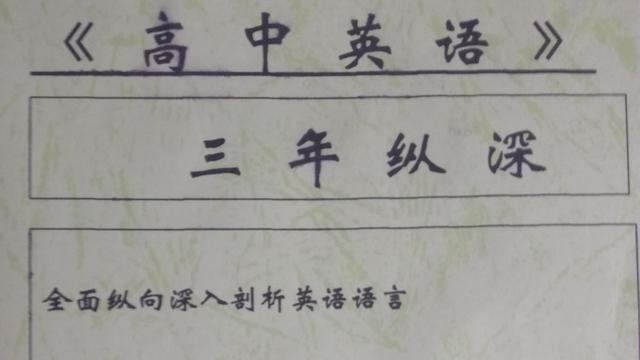 《高中英语》
三年纵深
全面纵向深入剖析英语语言